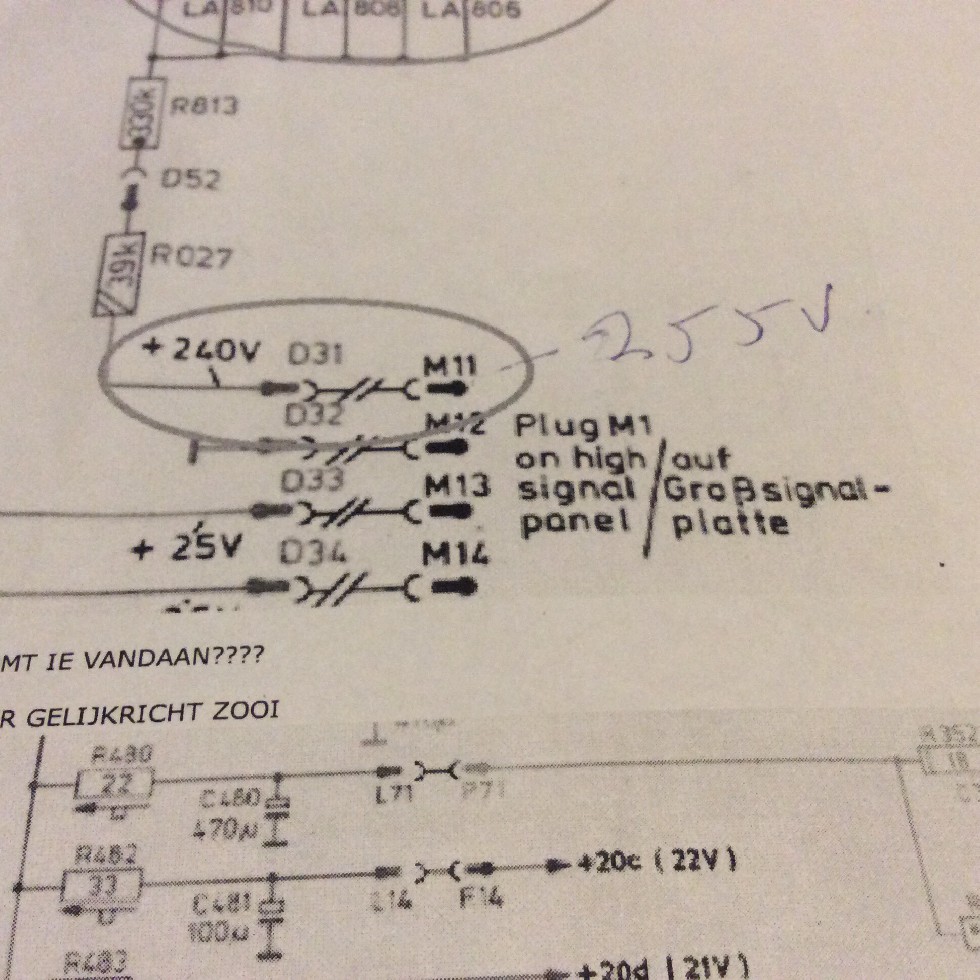 LA 810 LA 808 LA 806
330k R813
D52
39k R027
+ 240V D31 M11 255V
D32 M12 Plug M1
on high / auf
D33 M13 signal / Großsignal-
panel / platte
+ 25V D34 M14
MT IE VANDAAN????
R GELIJKRICHT ZOOI
R480 R352
22 18
L71 P71
C480
470µ
R482
33 +20c ( 22V )
L14 F14
C481
100µ
R483
+20d ( 21V )